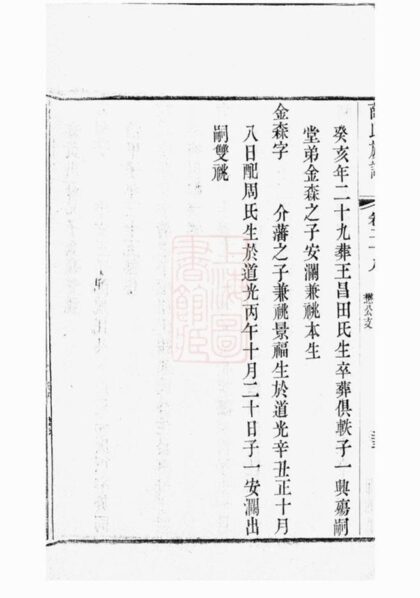 癸亥年二十九葬王昌田氏生卒葬俱軼子一興殤嗣
堂弟金森之子安瀾兼祧本生
金森字　介藩之子兼祧景福生於道光辛丑正十月
八日配周氏生於道光丙午十月二十日子一安瀾出
嗣雙祧
上海圖
書館藏